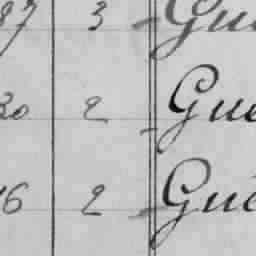 87 3 Gue
30 2 Gue
16 2 Gue